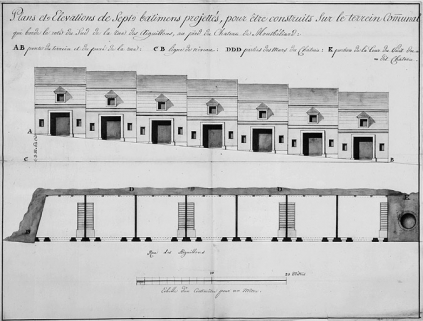 Plans et Elévations de Sept batimens projettés, pour être construits Sur le terrein Comunal
qui borde le coté du Sud de la rue des Aiguillons, au pied du Chateau de Montbéliard.
AB pente du terrein et du pavé de la rue; CB ligne de niveau; DDD parties des Murs du Château; E portion de la Cour du
dit Château.
A
C
B
D D
E
Rue des Aiguillons
10 20 Mètres
Echelle d'un Centimètre pour un Mètre.